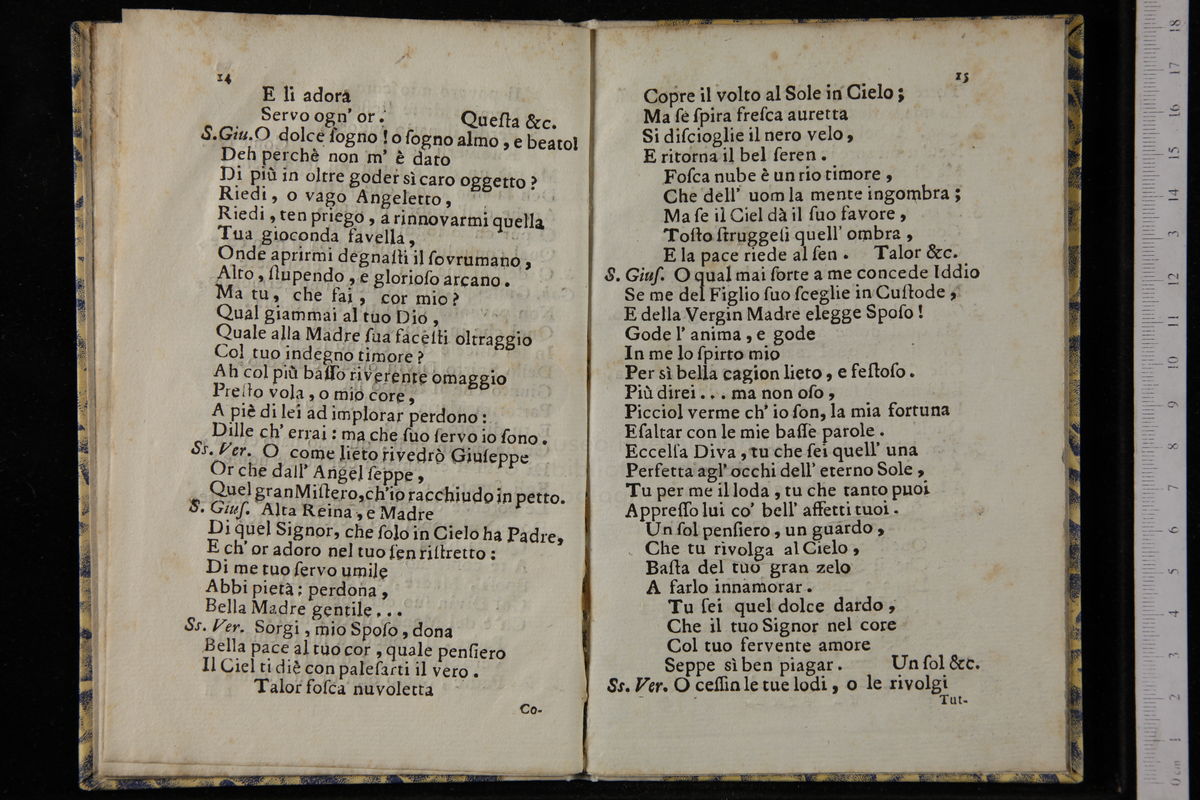 14
E li adora
Servo ogn' or. Queſta &c.
S.Giu. O dolce ſogno! o ſogno almo, e beato!
Deh perchè non m' è dato
Di più in oltre goder sì caro oggetto?
Riedi, o vago Angeletto,
Riedi, ten priego, a rinnovarmi quella
Tua gioconda favella,
Onde aprirmi degnaſti il ſovrumano,
Alto, ſtupendo, e glorioſo arcano.
Ma tu, che fai, cor mio?
Qual giammai al tuo Dio,
Quale alla Madre ſua faceſti oltraggio
Col tuo indegno timore?
Ah col più baſſo riverente omaggio
Preſto vola, o mio core,
A piè di lei ad implorar perdono:
Dille ch' errai: ma che ſuo ſervo io ſono.
Ss. Ver. O come lieto rivedrò Giuſeppe
Or che dall' Angel ſeppe,
Quel gran Miſtero, ch'io racchiudo in petto.
S. Giuſ. Alta Reina, e Madre
Di quel Signor, che ſolo in Cielo ha Padre,
E ch' or adoro nel tuo ſen riſtretto:
Di me tuo ſervo umile
Abbi pietà: perdona,
Bella Madre gentile...
Ss. Ver. Sorgi, mio Spoſo, dona
Bella pace al tuo cor, quale penſiero
Il Ciel ti diè con paleſarti il vero.
Talor foſca nuvoletta
Co-
15
Copre il volto al Sole in Cielo;
Ma ſe ſpira freſca auretta
Si diſcioglie il nero velo,
E ritorna il bel ſeren.
Foſca nube è un rio timore,
Che dell' uom la mente ingombra;
Ma ſe il Ciel dà il ſuo favore,
Toſto ſtruggeſi quell' ombra,
E la pace riede al ſen. Talor &c.
S. Giuſ. O qual mai ſorte a me concede Iddio
Se me del Figlio ſuo ſceglie in Cuſtode,
E della Vergin Madre elegge Spoſo!
Gode l' anima, e gode
In me lo ſpirto mio
Per sì bella cagion lieto, e feſtoſo.
Più direi... ma non oſo,
Picciol verme ch' io ſon, la mia fortuna
Eſaltar con le mie baſſe parole.
Eccelſa Diva, tu che ſei quell' una
Perfetta agl' occhi dell' eterno Sole,
Tu per me il loda, tu che tanto puoi
Appreſſo lui co' bell' affetti tuoi.
Un ſol penſiero, un guardo,
Che tu rivolga al Cielo,
Baſta del tuo gran zelo
A farlo innamorar.
Tu ſei quel dolce dardo,
Che il tuo Signor nel core
Col tuo fervente amore
Seppe sì ben piagar. Un ſol &c.
Ss. Ver. O ceſſin le tue lodi, o le rivolgi
Tut-
0 cm 1 2 3 4 5 6 7 8 9 10 11 12 13 14 15 16 17 18